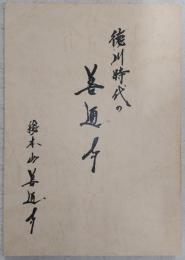 徳川時代の
善通寺
総本山善通寺